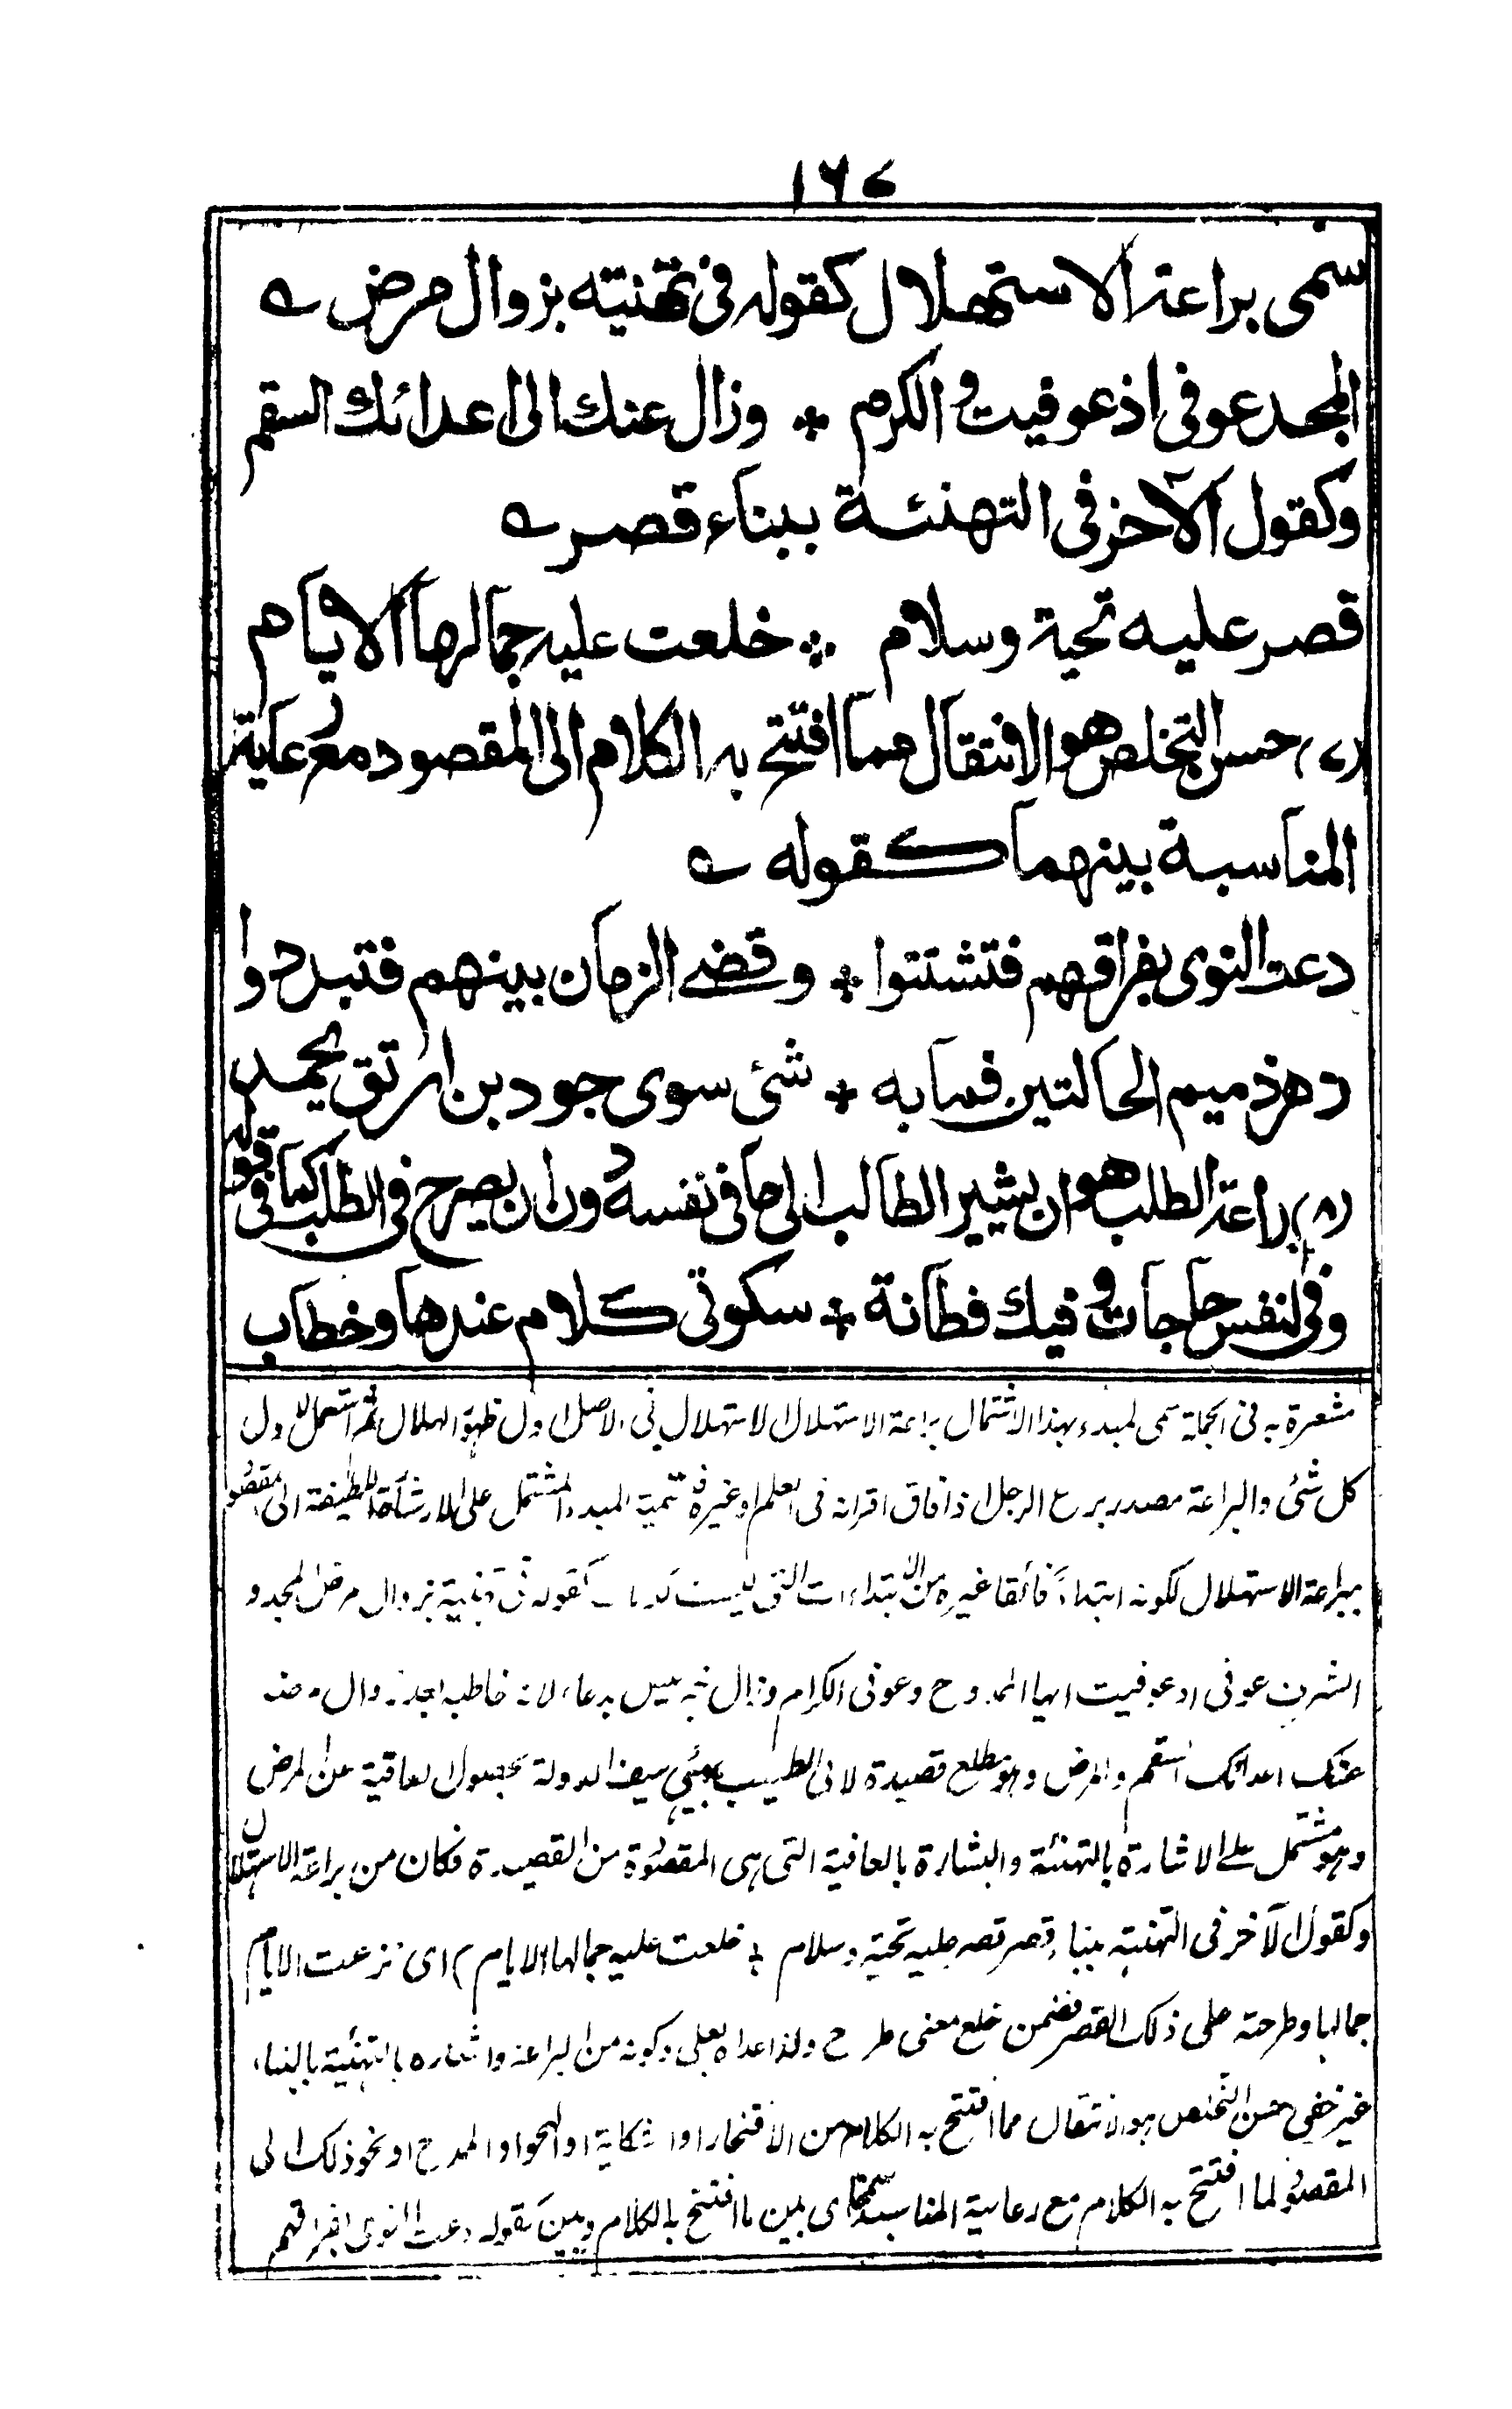 ١٦٧
سمى براعة الاستهلال كقوله فى تهنيته بزوال مرض ؎
المجد عوفى اذ عوفيت والكرم * وزال عنك الى اعدائك السقم
وكقول الآخر فى التهنئة ببناء قصر ؎
قصر عليه تحية وسلام * خلعت عليه جمالها الايام
(٧) حسن التخلص هو الانتقال مما افتتح به الكلام الى المقصود مع رعاية
المناسبة بينهما كقوله ؎
دعت النوى بفراقهم فتشتتوا * وقضے الزمان بينهم فتبددوا
دهر ذميم الحالتين فما به * شئ سوى جود بن ارتق يحمد
(٨) براعة الطلب هو ان يشير الطالب الى ما فى نفسه دون ان يصرح فى الطلب كما فى قوله
وفى النفس حاجات وفيك فطانة * سكوتى كلام عندها وخطاب
مشعرة به فى الجملة سمى المبدء بهذا الاشتمال براعة الاستهلال الاستهلال فى الاصل اول ظهور الهلال ثم استعمل لاول
كل شئ والبراعة مصدر برع الرجل اذا فاق اقرانه فى العلم او غيره فتسمية المبدء المشتمل على الاشارة اللطيفة الى المقصود
ببراعة الاستهلال لكونه ابتداءً فائقا غيره من الابتداءات التى ليست كذلك كقوله فى تهنية بزوال مرض المجد و
الشرف عوفى اذ عوفيت ايها الممدوح وعوفى الكرام وزال خبر ليس بدعاء لانه خاطبه بعد زوال مرضه
عنك اعدائك السقم والمرض وهو مطلع قصيدة لابى الطيب يهنئ سيف الدولة بحصول العافية عن المرض
وهو مشتمل على الاشارة بالتهنئة والبشارة بالعافية التى هى المقصودة من القصيدة فكان من براعة الاستهلال
وكقول الآخر فى التهنية ببناء قصر قصر عليه تحية وسلام * خلعت عليه جمالها الايام) اى نزعت الايام
جمالها وطرحته على ذلك القصر فضمن خلع معنى طرح ولذا عداه بعلى وكونه من البراعة واشعاره بالتهنية بالبناء
غير خفى حسن التخلص هو الانتقال مما افتتح به الكلام من الافتخار او الشكاية او الهجو او المدح او نحو ذلك الى
المقصود لما افتتح به الكلام مع رعاية المناسبة بينهما اى بين ما افتتح به الكلام وبين كقوله دعت النوى بفراقهم